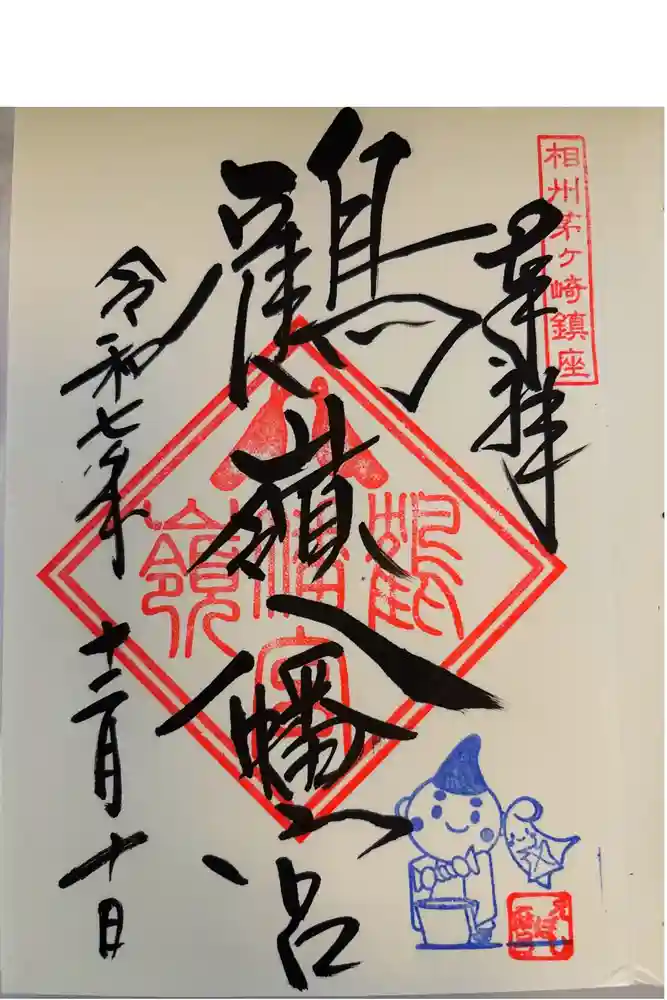 相州茅ヶ崎鎮座
奉拝
鶴嶺八幡宮
鶴嶺八幡宮
令和七年
十二月十日